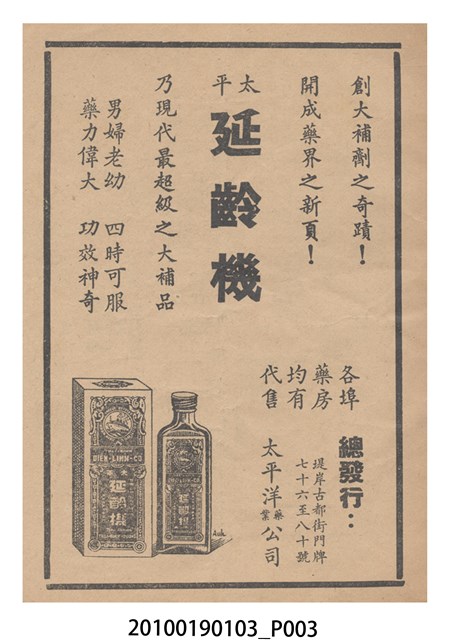 創大補劑之奇蹟！
開成藥界之新頁！
太平
延齡機
乃現代最超級之大補品
男婦老幼 四時可服
藥力偉大 功效神奇
各埠
藥房
均有
代售
總發行：
堤岸古都街門牌
七十六至八十號
太平洋藥業公司
DIEN-LINH-CO
延齡機
延齡機
20100190103_P003